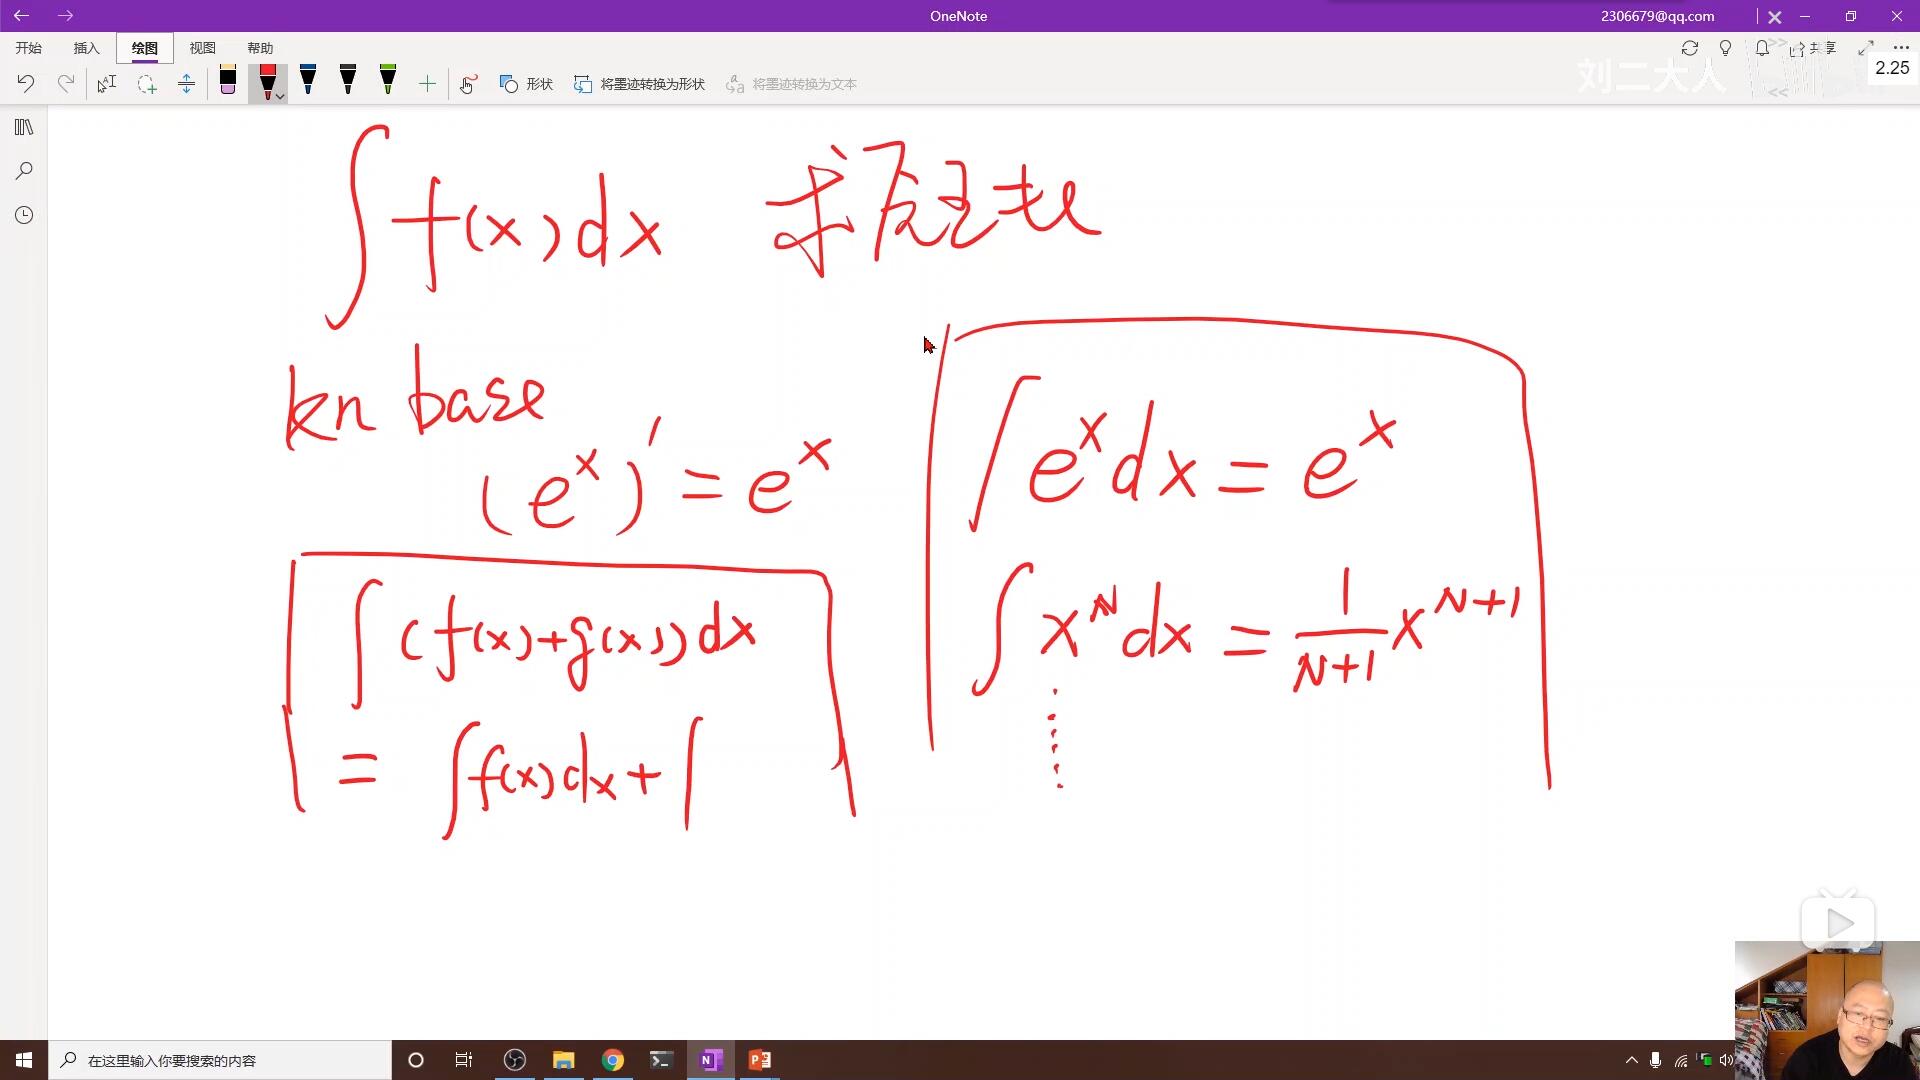 OneNote
2306679@qq.com
开始 插入 绘图 视图 帮助
共享
2.25
刘二大人
形状 将墨迹转换为形状 将墨迹转换为文本
∫ f(x) dx 求
kn base
(e^x)' = e^x
∫ (f(x)+g(x)) dx
= ∫ f(x) dx + ∫
∫ e^x dx = e^x
∫ x^N dx = 1/(N+1) x^(N+1)
在这里输入你要搜索的内容